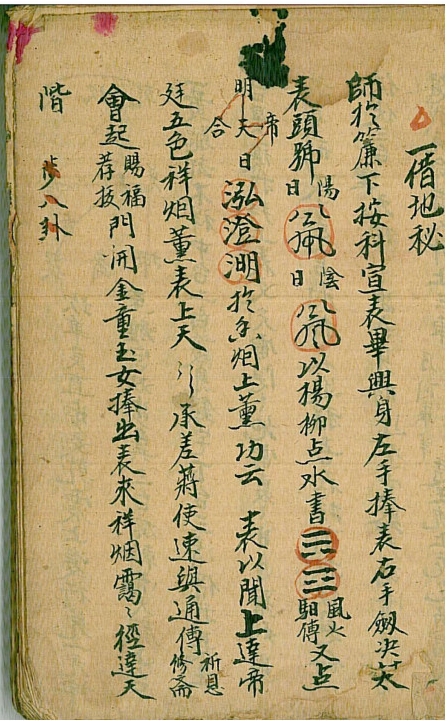 一借地秘
師於簾下按科宣表畢興身左手捧表右手劍決
表頭號陽日陰日以楊柳点水書☲☴風火駔傳又点
明天帝合日泓澄湖於香烟上薰功云 表以聞上達帝
廷五色祥烟薰表上天 承差蔣使速與通傳祈恩修齋
會起賜福荐拔門開金童玉女捧出表來祥烟靄〻徑達天
階 步八卦